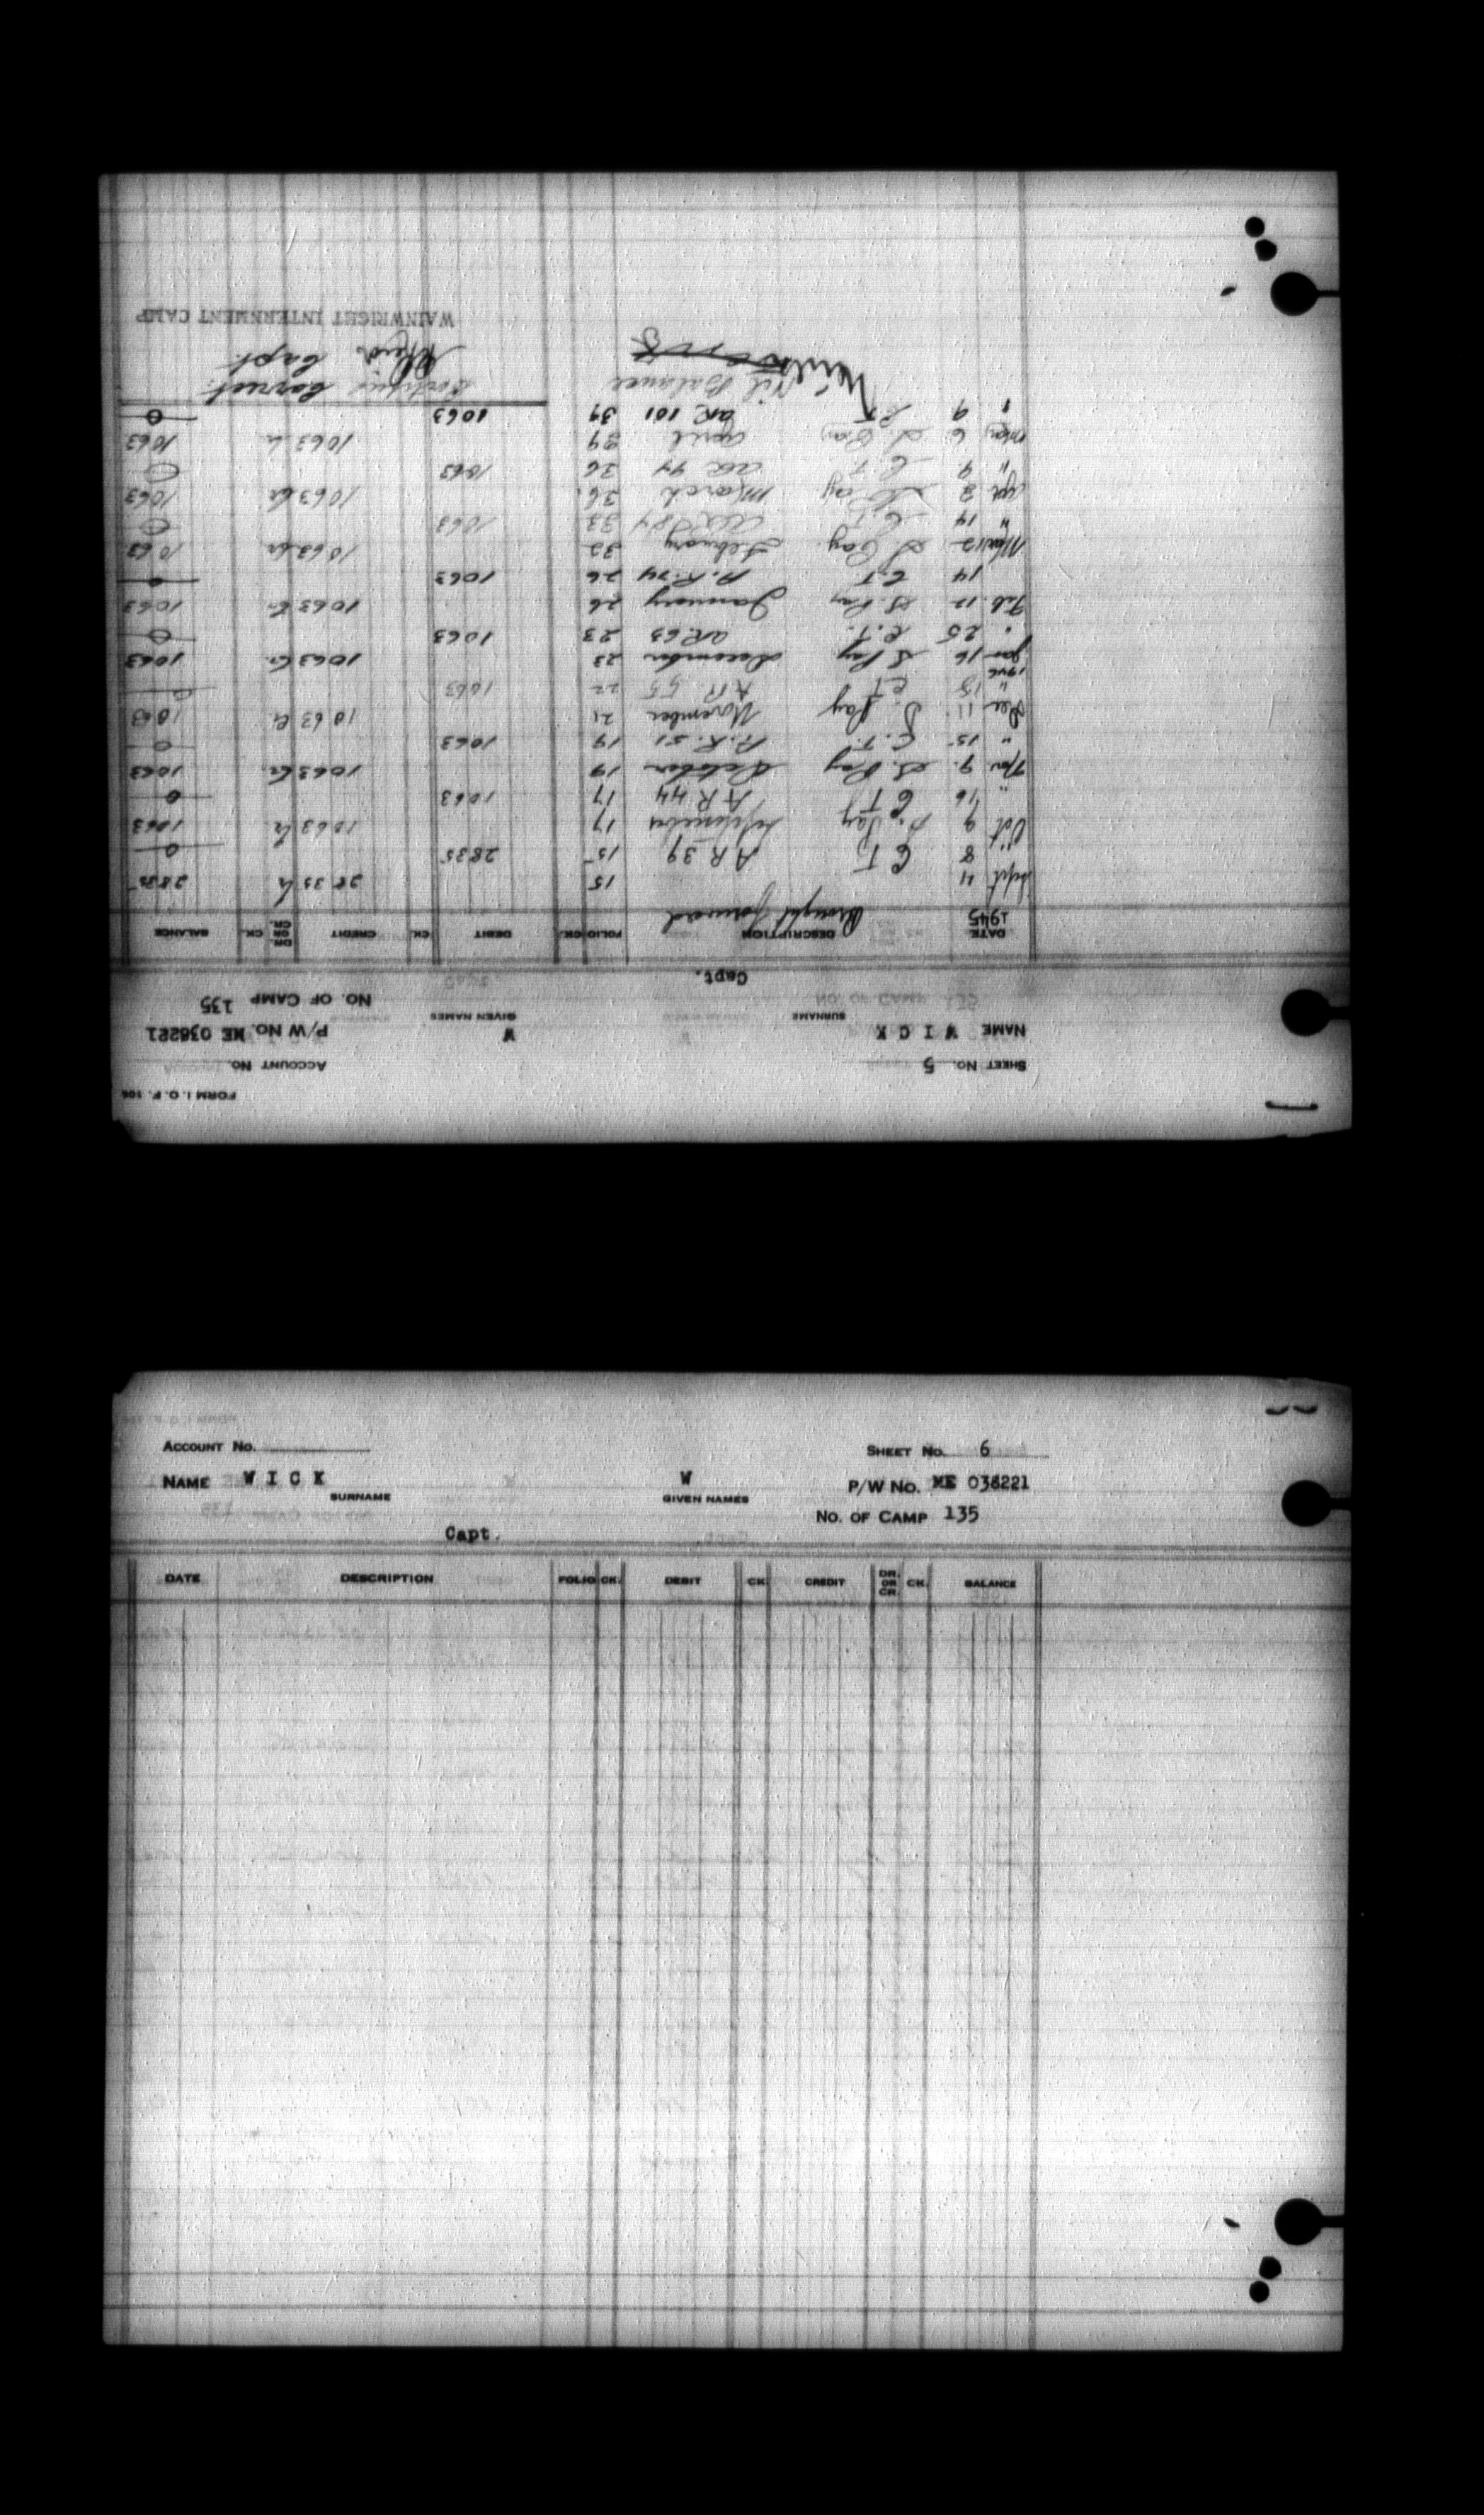 FORM I.O.F. 106
SHEET NO. 5 ACCOUNT NO.
NAME W I C K W P/W No. ME 036221
SURNAME GIVEN NAMES NO. OF CAMP 135
Capt.
DATE DESCRIPTION FOLIO CK. DEBIT CK. CREDIT DR. OR CR. CK. BALANCE
1945 Brought forward
Sept 4 15 28 35 Cr 2835
" 8 C T AR 39 15 2835 0
Oct 9 S. Pay September 17 1063 Cr 1063
" 16 C T AR 44 17 1063 0
Nov 9. S. Pay October 19 1063 Cr. 1063
" 15 C. T. A.R. 51 19 1063 0
Dec 11. S. Pay November 21 1063 Cr 1063
" 18 C T A.R. 55 22 1063 0
1946
Jan 16 S Pay December 23 1063 Cr. 1063
" 25 C.T. AR 63 23 1063 0
Feb. 12 S. Pay January 26 1063 Cr 1063
14 C.T A.R. 74 26 1063 0
Mar 12 S Pay. February 32 1063 Cr 1063
" 14 C.T. 33 1063 0
Apr 8 S Pay March 36. 1063 Cr 1063
" 9 C.T. AR 94 36 1063 0
May 6 S Pay April 39 1063 Cr 1063
" 9 C.T AR 101 39 1063 0
Nil Balance Certified Correct.
Capt.
WAINWRIGHT INTERNMENT CAMP
ACCOUNT NO. SHEET NO. 6
NAME W I C K W P/W No. ME 036221
SURNAME GIVEN NAMES
NO. OF CAMP 135
Capt.
DATE DESCRIPTION FOLIO CK. DEBIT CK. CREDIT DR. OR CR. CK. BALANCE